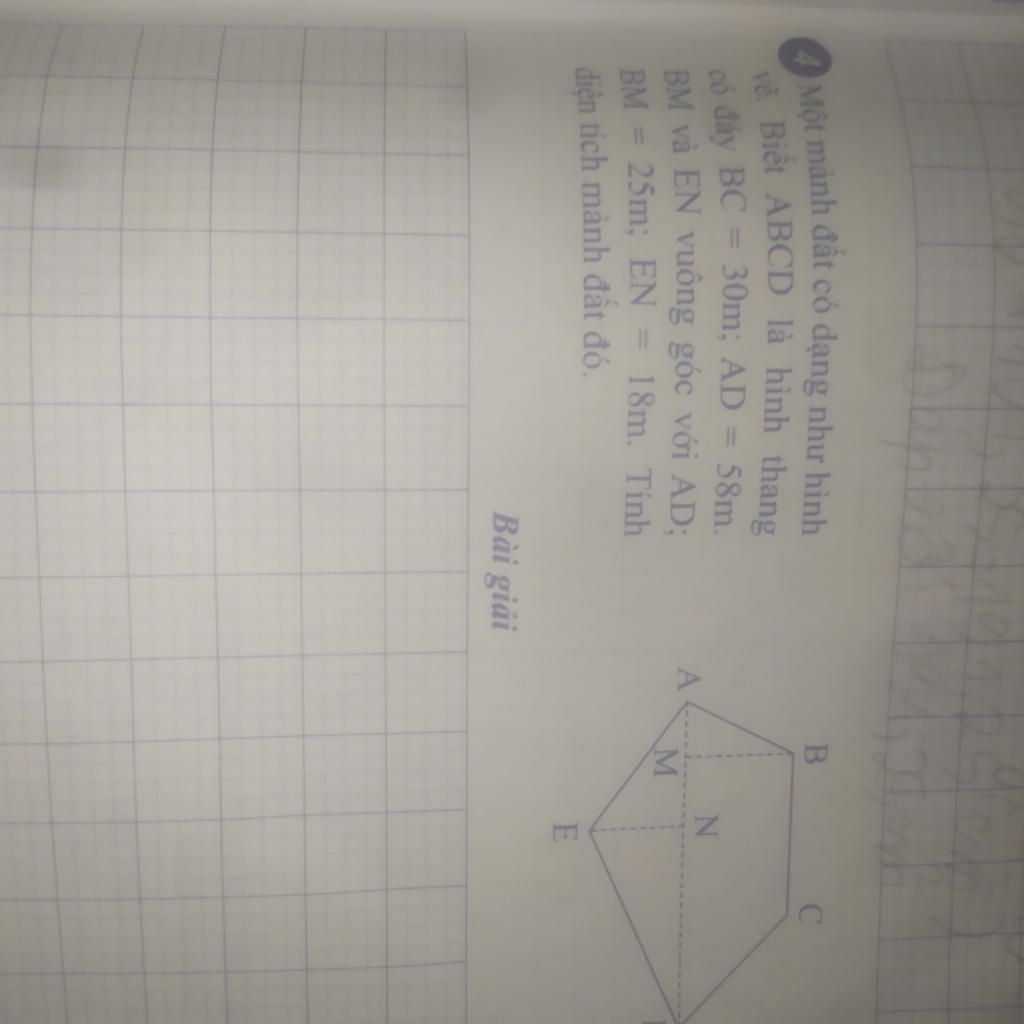 4 Một mảnh đất có dạng như hình
vẽ. Biết ABCD là hình thang
có đáy BC = 30m; AD = 58m.
BM và EN vuông góc với AD;
BM = 25m; EN = 18m. Tính
diện tích mảnh đất đó.
B
C
A
M
N
E
Bài giải